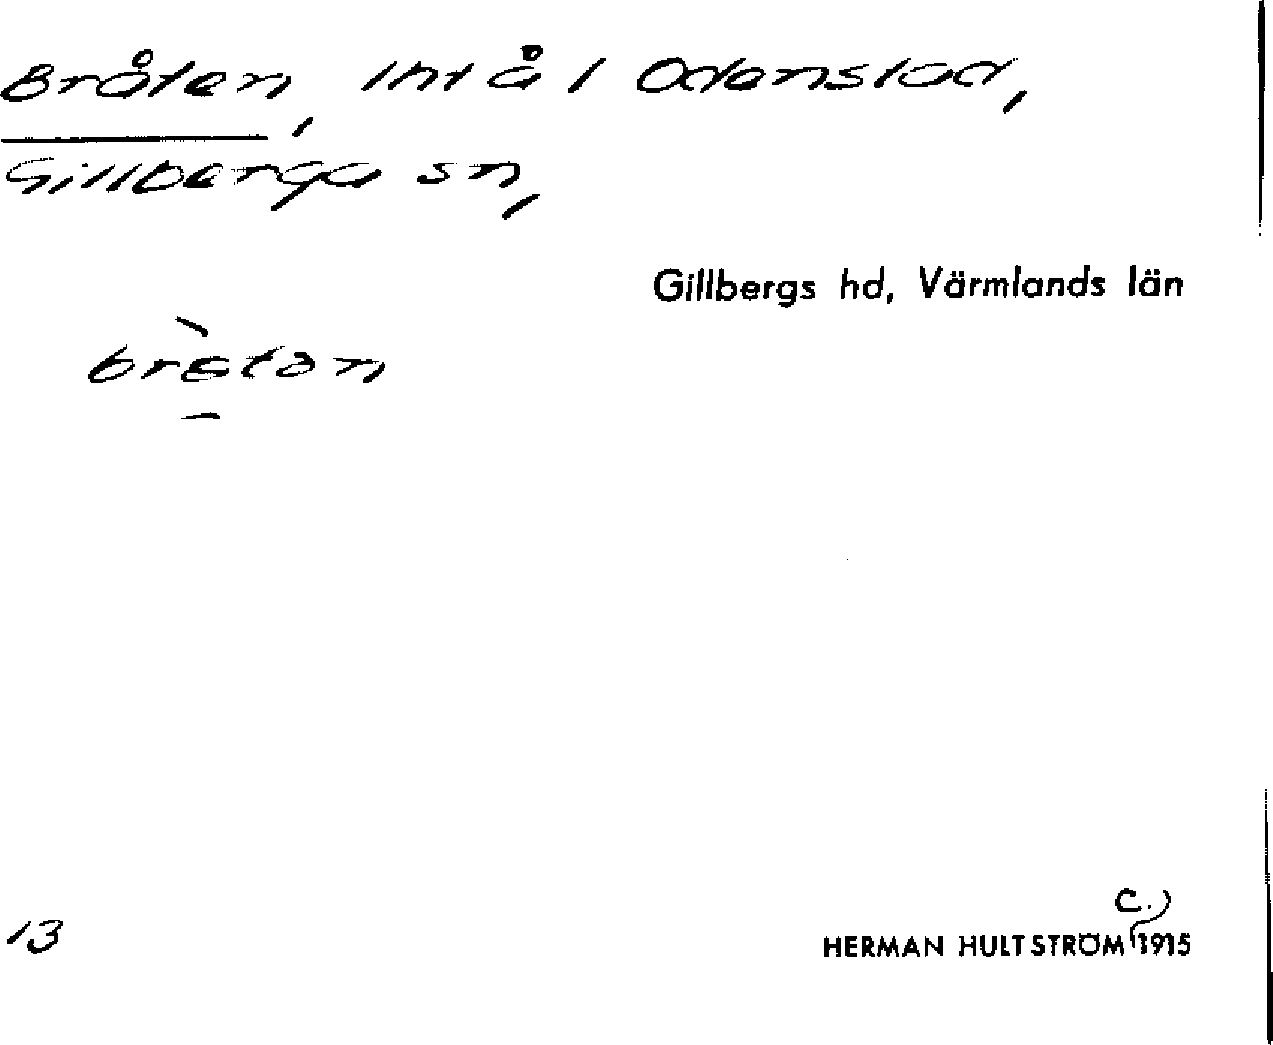 Bråten, Int å i Odenstad,
Gillberga sn,
Gillbergs hd, Värmlands län
13
c.)
HERMAN HULTSTRÖM 1915